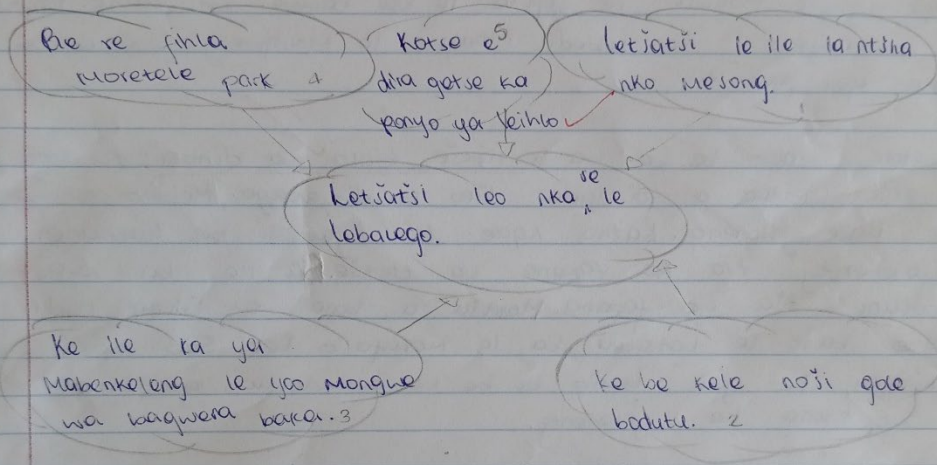 Ra re fihla
Moretele park 4
Kotse e 5
dira gotse ka
ponyo ya leihlo
letšatši le ile la ntšha
nko mesong. 1
Letšatši leo nka se le
lebalego.
Ke ile ka ya
mabenkeleng le yoo mongwe
wa bagwera baka. 3
Ke be kele noši gole
bodutu. 2